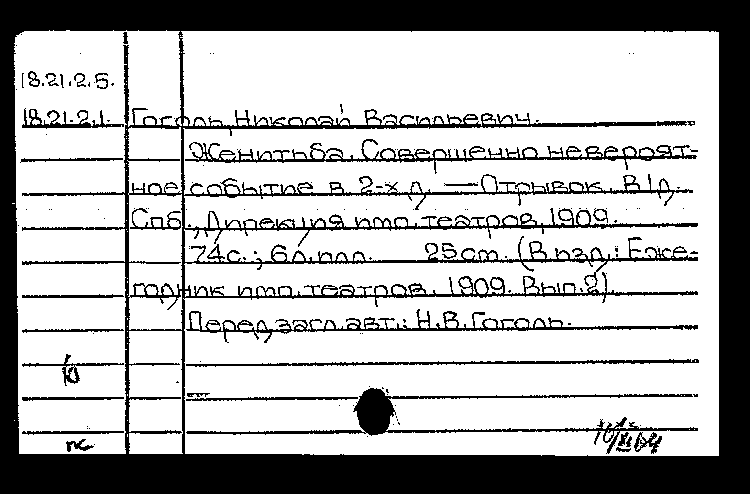 18.21.2.5.
18.21.2.1. Гоголь, Николай Васильевич.
Женитьба. Совершенно невероят-
ное событие в 2-х д. — Отрывок. В 1 д.
Спб., Дирекция имп. театров, 1909.
74 с.; 6 л. илл. 25 см. (В изд.: Еже-
годник имп. театров. 1909. Вып. 2).
Перед загл. авт.: Н. В. Гоголь.